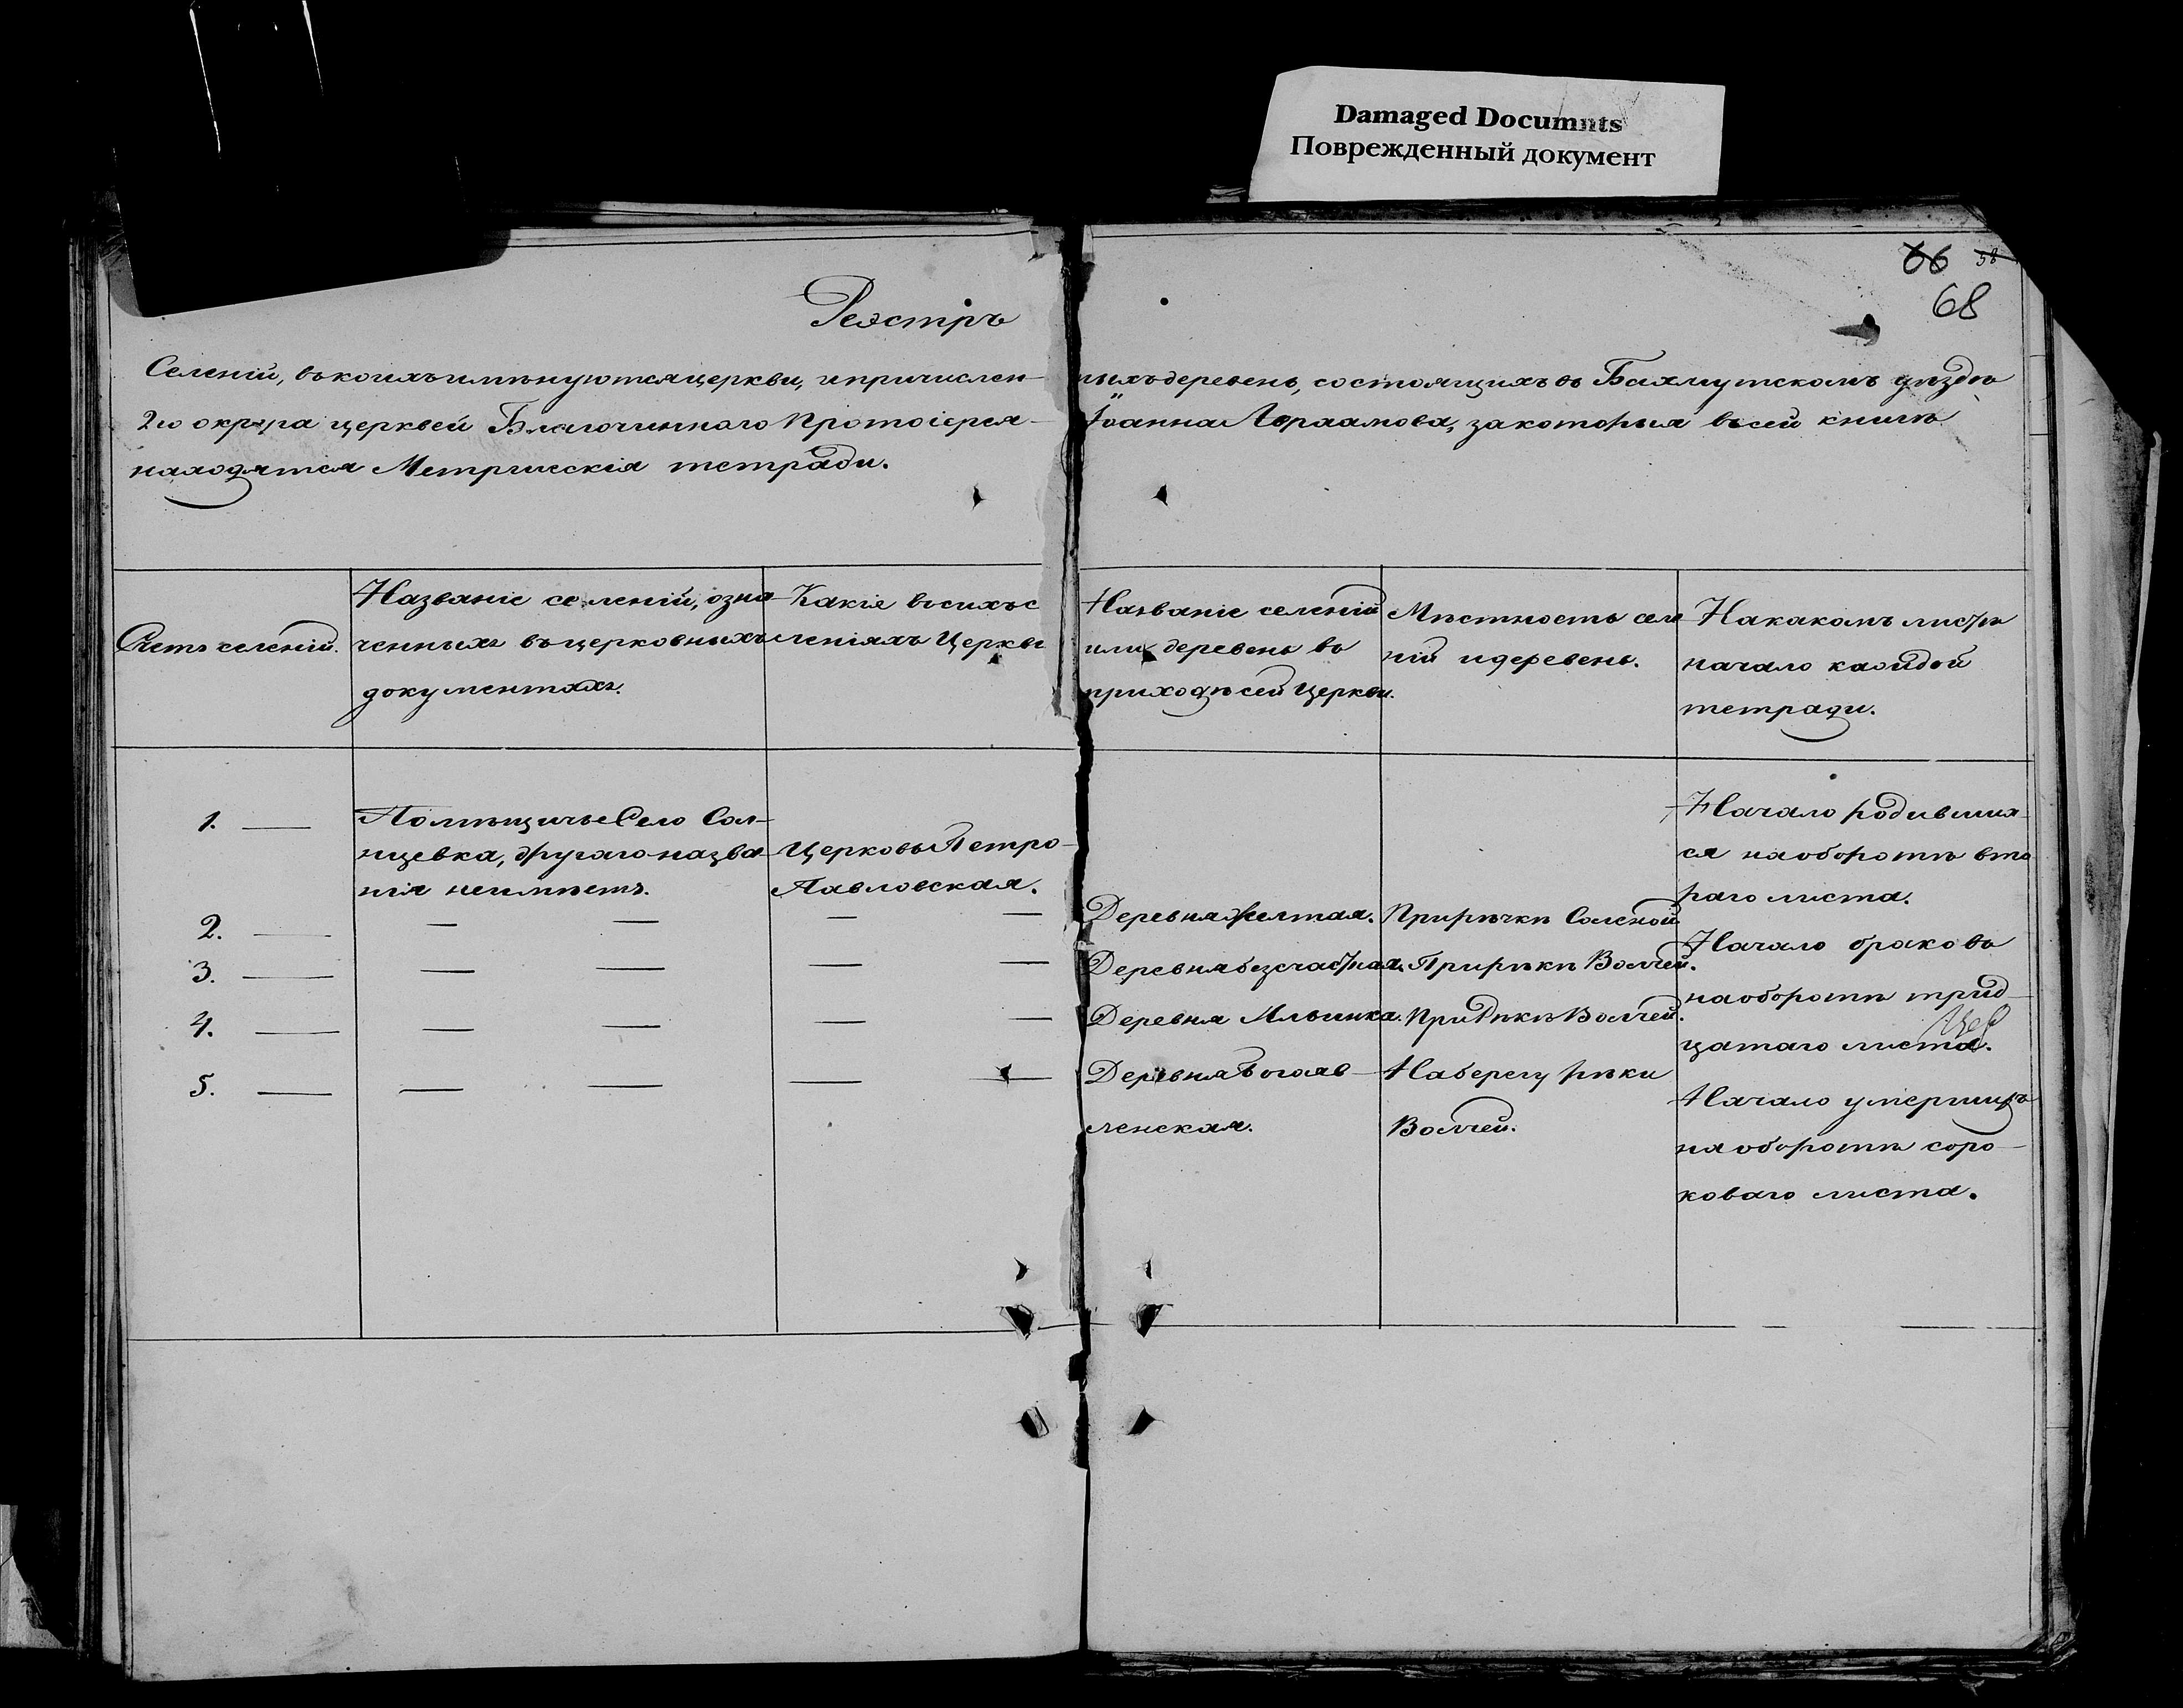 Damaged Documents
Поврежденный документ
66 58
68
Реэстръ
Селеній, въ коихъ имѣнуются церкви, и причислен-ныхъ деревень, состоящихъ въ Бахмутскомъ уѣздѣ
2го округа церквей Благочиннаго Протоіерея Іоанна Авраамова, за которыя въ сей книгѣ
находятся Метрическія тетради.
Счетъ селеній.
Названіе селеній, озна-
ченныхъ въ церковныхъ
документахъ.
Какіе въ сихъ се
леніяхъ Церкви
Названіе селеній
или деревень въ
приходѣ сей Церкви.
Мѣстность селе
ній и деревень.
На какомъ листѣ
начало каждой
тетради.
1. — Помѣщичье Село Сол-
нцевка, другаго назва-
нія неимѣетъ.
Церковь Петро-
Павловская.
Начало родившия-
ся на оборотѣ вто
раго листа.
2. — — — — — Деревня Желтая. При рѣчкѣ Соленой
3. — — — — — Деревня безсчастная. При рѣкѣ Волчей.
4. — — — — — Деревня Ильинка. При Рѣкѣ Волчей.
5. — — — — — Деревня Богояв-
ленская.
На берегу рѣки
Волчей.
Начало браковъ
на оборотѣ трид-
цатаго листа.
Начало умершихъ
на оборотѣ соро-
коваго листа.